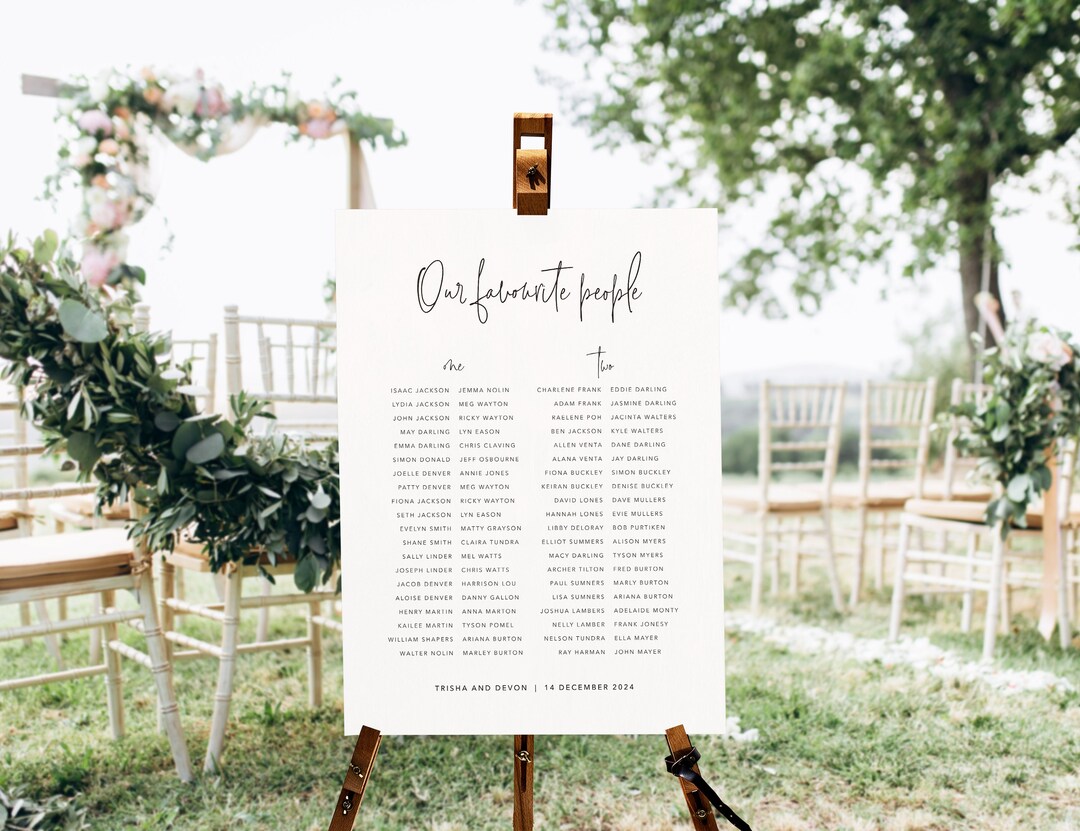 Our favourite people
one two
ISAAC JACKSON JEMMA NOLIN CHARLENE FRANK EDDIE DARLING
LYDIA JACKSON MEG WAYTON ADAM FRANK JASMINE DARLING
JOHN JACKSON RICKY WAYTON RAELENE POH JACINTA WALTERS
MAY DARLING LYN EASON BEN JACKSON KYLE WALTERS
EMMA DARLING CHRIS CLAVING ALLEN VENTA DANE DARLING
SIMON DONALD JEFF OSBOURNE ALANA VENTA JAY DARLING
JOELLE DENVER ANNIE JONES FIONA BUCKLEY SIMON BUCKLEY
PATTY DENVER MEG WAYTON KEIRAN BUCKLEY DENISE BUCKLEY
FIONA JACKSON RICKY WAYTON DAVID LONES DAVE MULLERS
SETH JACKSON LYN EASON HANNAH LONES EVIE MULLERS
EVELYN SMITH MATTY GRAYSON LIBBY DELORAY BOB PURTIKEN
SHANE SMITH CLAIRA TUNDRA ELLIOT SUMMERS ALISON MYERS
SALLY LINDER MEL WATTS MACY DARLING TYSON MYERS
JOSEPH LINDER CHRIS WATTS ARCHER TILTON FRED BURTON
JACOB DENVER HARRISON LOU PAUL SUMNERS MARLY BURTON
ALOISE DENVER DANNY GALLON LISA SUMNERS ARIANA BURTON
HENRY MARTIN ANNA MARTON JOSHUA LAMBERS ADELAIDE MONTY
KAILEE MARTIN TYSON POMEL NELLY LAMBER FRANK JONESY
WILLIAM SHAPERS ARIANA BURTON NELSON TUNDRA ELLA MAYER
WALTER NOLIN MARLEY BURTON RAY HARMAN JOHN MAYER
TRISHA AND DEVON | 14 DECEMBER 2024